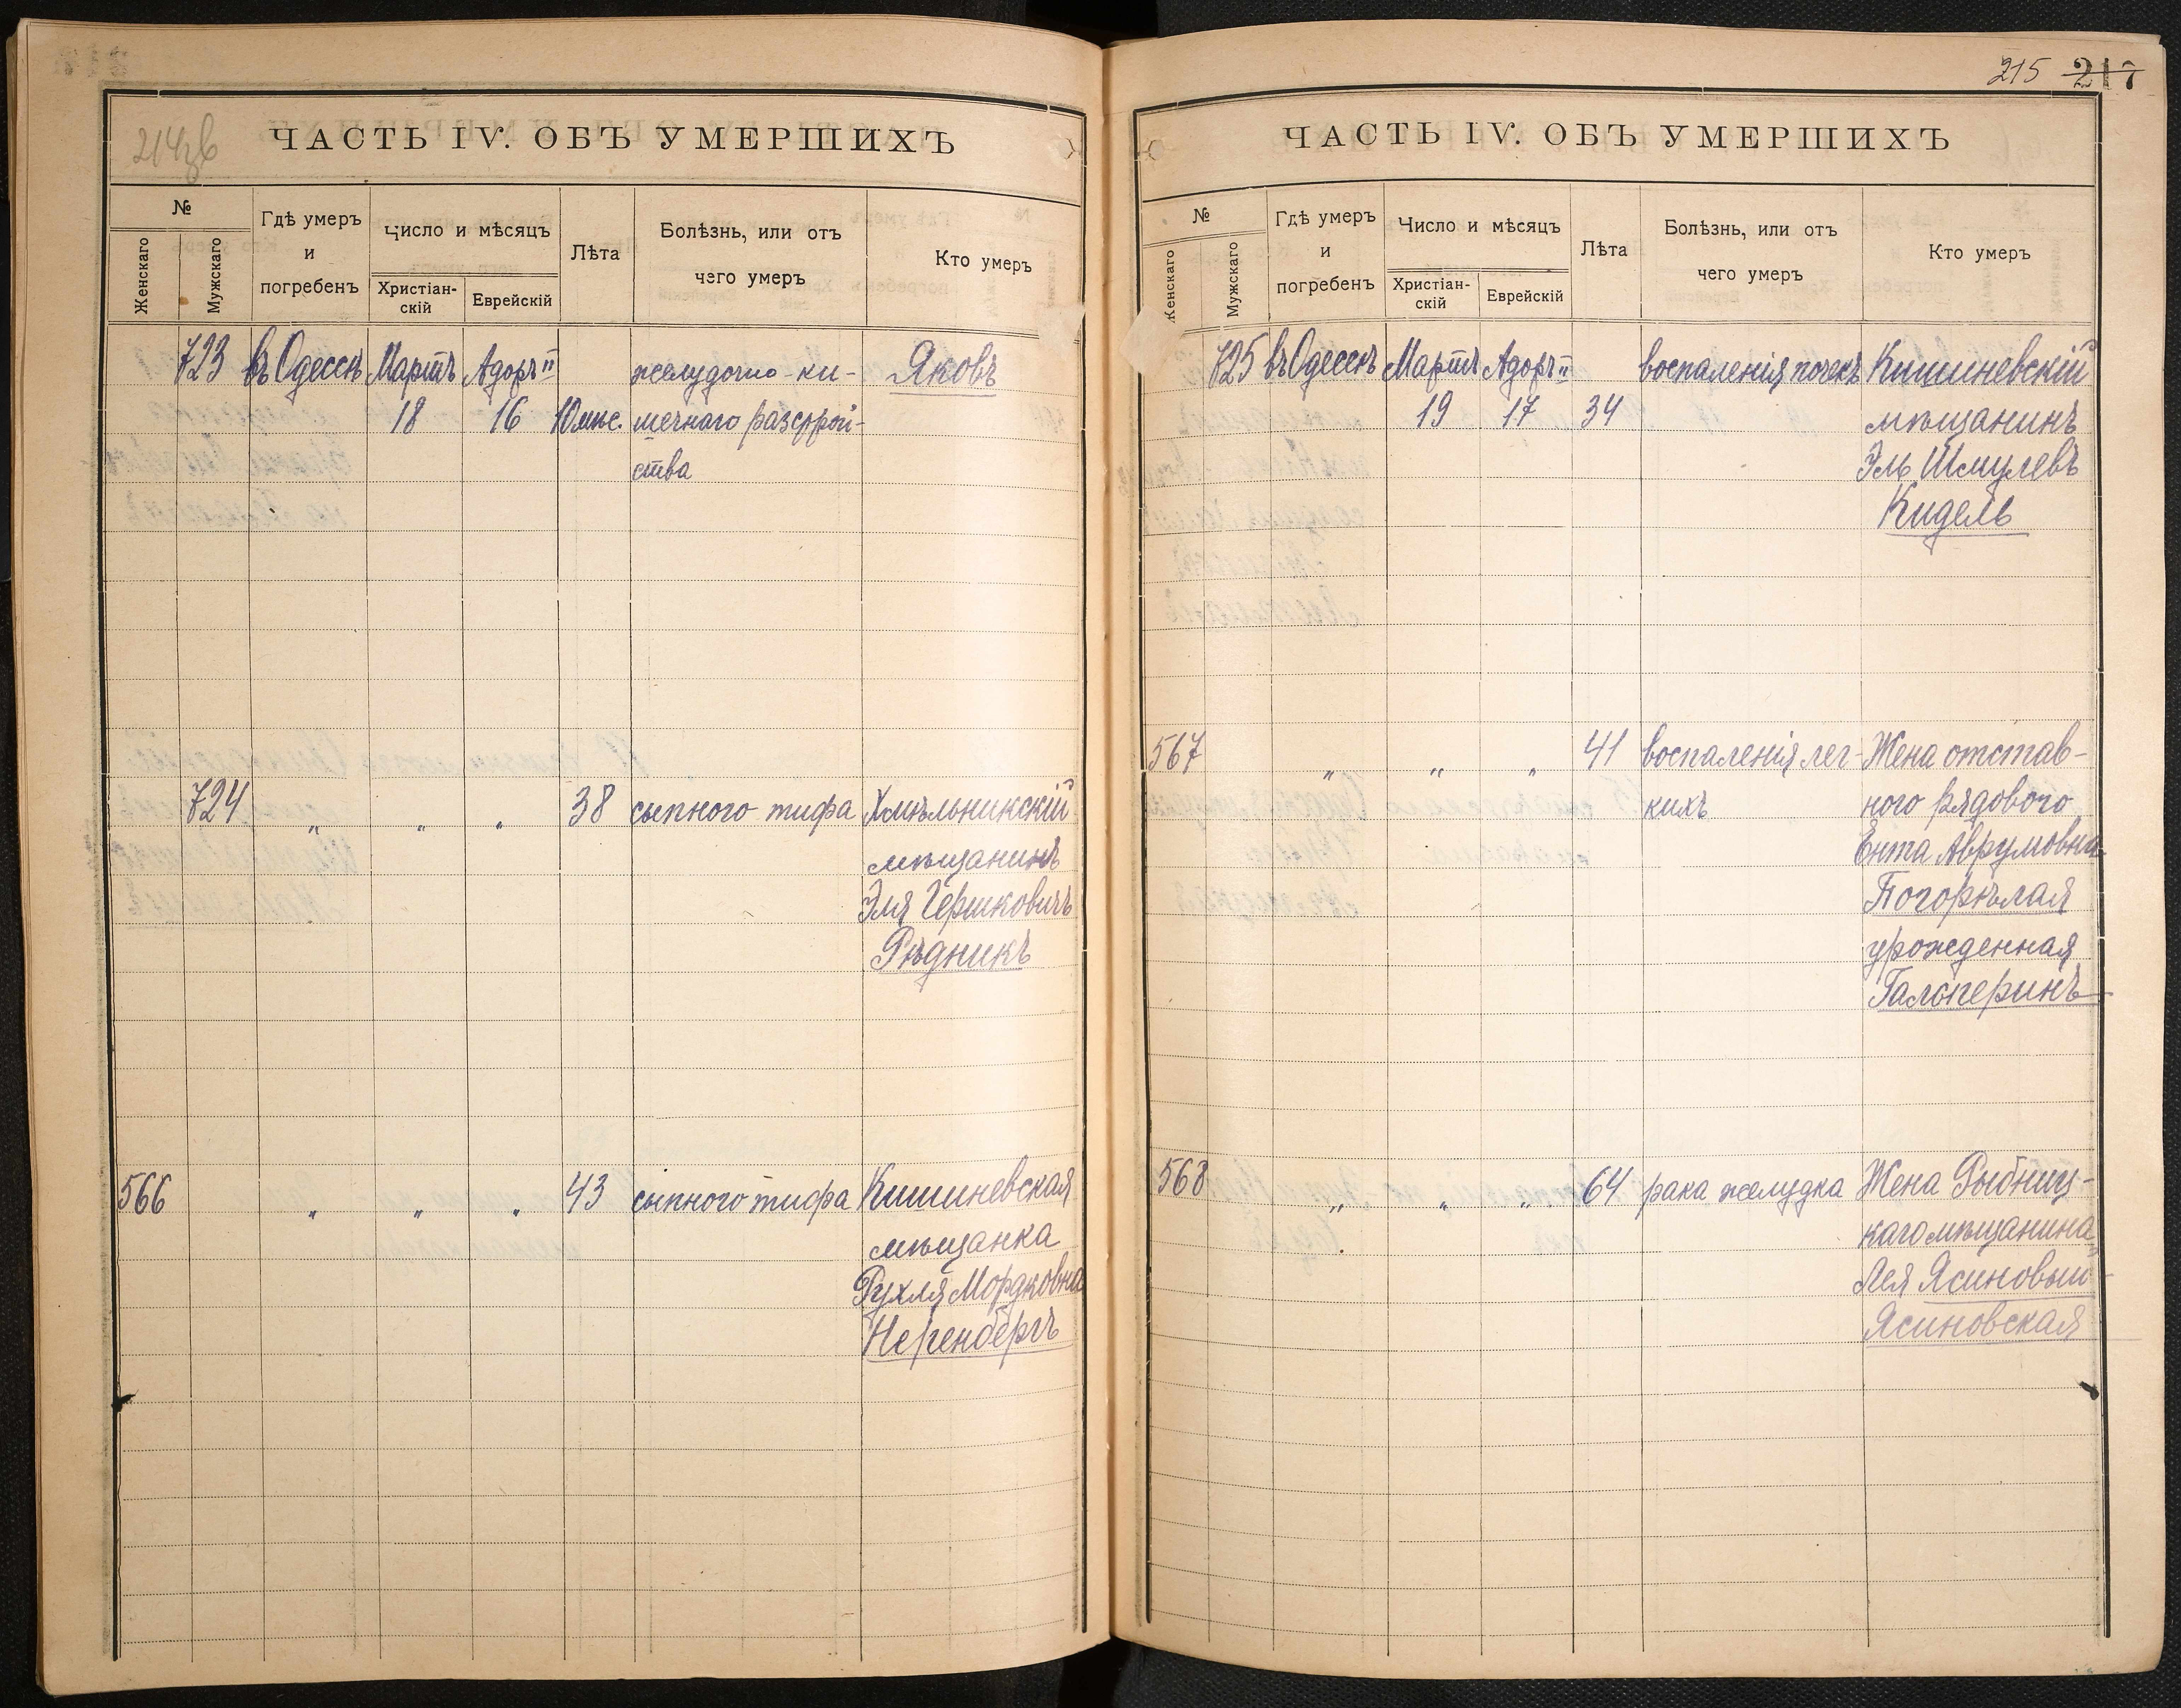 214зв
ЧАСТЬ IV. ОБЪ УМЕРШИХЪ
№
Женскаго
Мужскаго
Гдѣ умеръ
и
погребенъ
Число и мѣсяцъ
Христіан-
скій
Еврейскій
Лѣта
Болѣзнь, или отъ
чего умеръ
Кто умеръ
723 въ Одессѣ Мартъ Адоръ II желудочно-ки- Яковъ
18 16 10 мѣс. шечнаго разстрой-
ства
724 „ „ „ 38 сыпного тифа Хмѣльникскій
мѣщанинъ
Эля Гершковичъ
Рѣдникъ
566 „ „ „ 43 сыпного тифа Кишиневская
мѣщанка
Рухля Мордковна
Неренбергъ
215 217
ЧАСТЬ IV. ОБЪ УМЕРШИХЪ
№
Женскаго
Мужскаго
Гдѣ умеръ
и
погребенъ
Число и мѣсяцъ
Христіан-
скій
Еврейскій
Лѣта
Болѣзнь, или отъ
чего умеръ
Кто умеръ
725 въ Одессѣ Мартъ Адоръ II воспаленія почекъ Кишиневскій
19 17 34 мѣщанинъ
Эль Шмулевъ
Кидель
567 „ „ „ 41 воспаленія лег- Жена отстав-
кихъ ного рядового
Ента Аврумовна
Погорѣлая
урожденная
Гальперинъ
568 „ „ „ 64 рака желудка Жена Рыбниц-
каго мѣщанина
Лея
Ясиновская